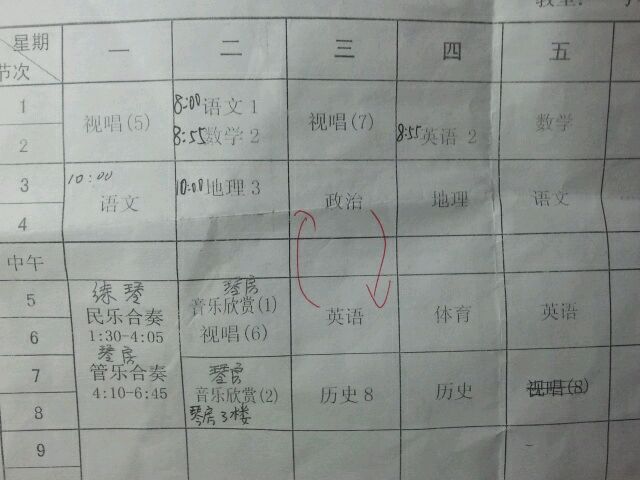 教室:
星期 一 二 三 四 五
节次
1 视唱(5) 8:00语文 1 视唱(7) 数学
2 8:55数学 2 8:55英语 2
3 10:00 语文 10:00地理 3 政治 地理 语文
4
中午
5 练琴 琴房
民乐合奏 音乐欣赏(1) 英语 体育 英语
6 1:30-4:05 视唱(6)
琴房
7 管乐合奏 琴房 历史 8 历史 视唱(8)
4:10-6:45 音乐欣赏(2)
8 琴房3楼
9